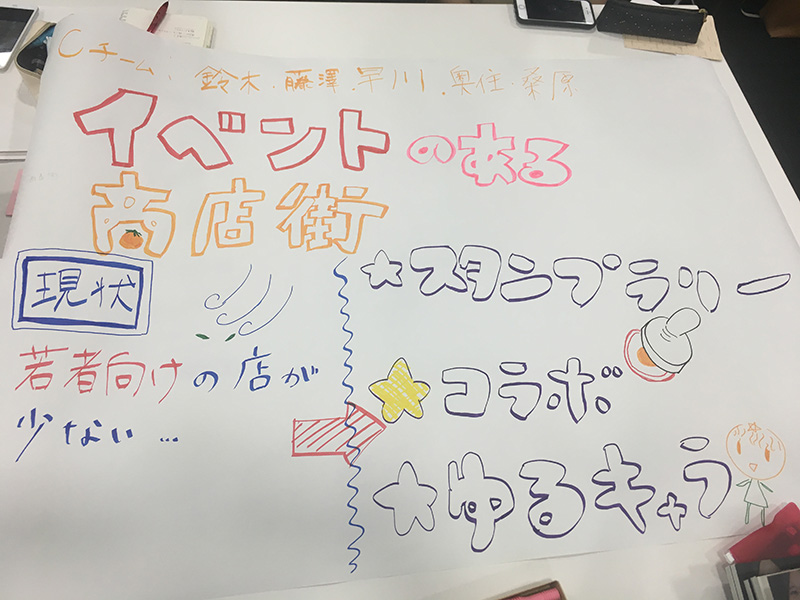 Cチーム 鈴木・藤澤・早川・奥住・桑原
イベントのある
商店街
現状
若者向けの店が
少ない…
☆スタンプラリー
★コラボ
☆ゆるキャラ